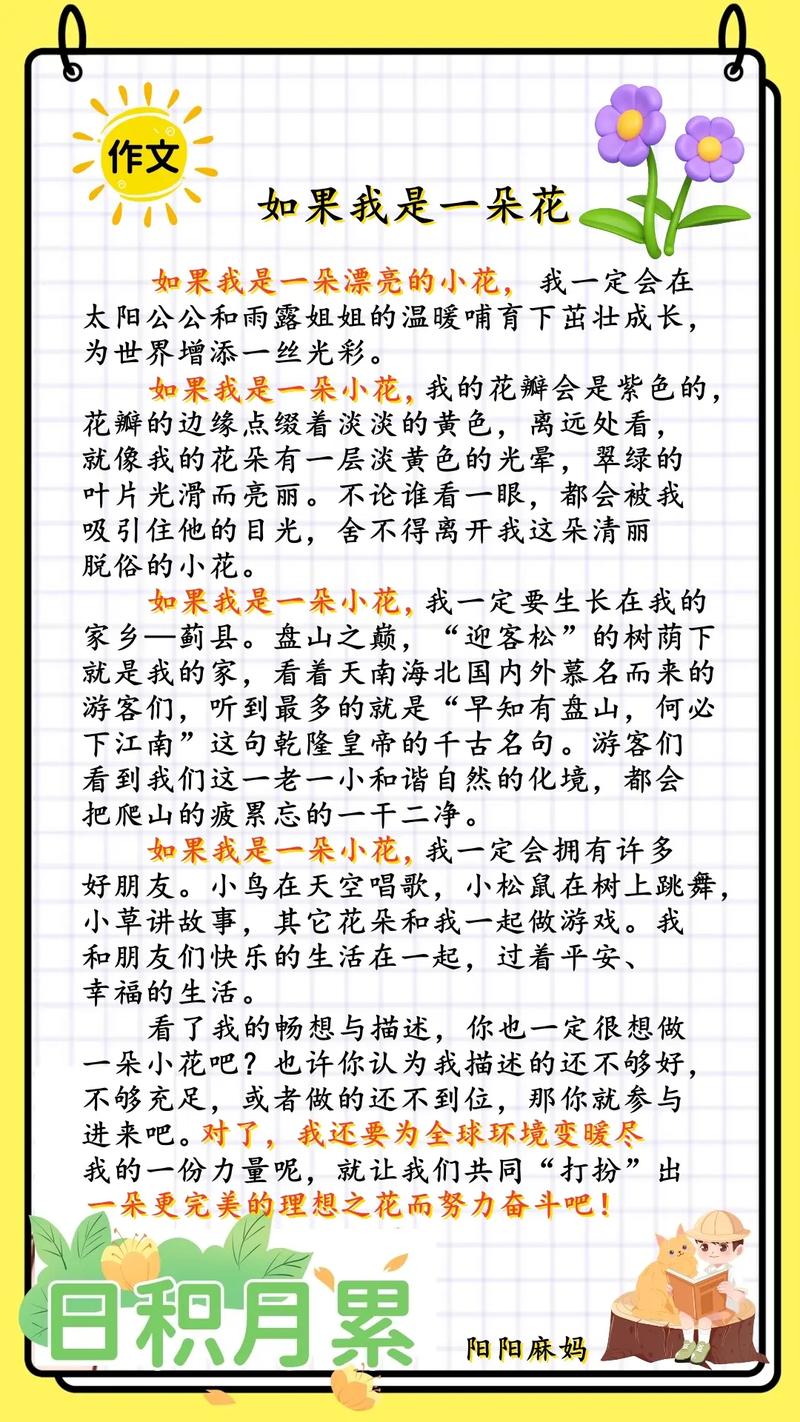 作文
如果我是一朵花
如果我是一朵漂亮的小花，我一定会在
太阳公公和雨露姐姐的温暖哺育下茁壮成长，
为世界增添一丝光彩。
如果我是一朵小花，我的花瓣会是紫色的，
花瓣的边缘点缀着淡淡的黄色，离远处看，
就像我的花朵有一层淡黄色的光晕，翠绿的
叶片光滑而亮丽。不论谁看一眼，都会被我
吸引住他的目光，舍不得离开我这朵清丽
脱俗的小花。
如果我是一朵小花，我一定要生长在我的
家乡—蓟县。盘山之巅，“迎客松”的树荫下
就是我的家，看着天南海北国内外慕名而来的
游客们，听到最多的就是“早知有盘山，何必
下江南”这句乾隆皇帝的千古名句。游客们
看到我们这一老一小和谐自然的化境，都会
把爬山的疲累忘的一干二净。
如果我是一朵小花，我一定会拥有许多
好朋友。小鸟在天空唱歌，小松鼠在树上跳舞，
小草讲故事，其它花朵和我一起做游戏。我
和朋友们快乐的生活在一起，过着平安、
幸福的生活。
看了我的畅想与描述，你也一定很想做
一朵小花吧？也许你认为我描述的还不够好，
不够充足，或者做的还不到位，那你就参与
进来吧。对了，我还要为全球环境变暖尽
我的一份力量呢，就让我们共同“打扮”出
一朵更完美的理想之花而努力奋斗吧！
日积月累
阳阳麻妈